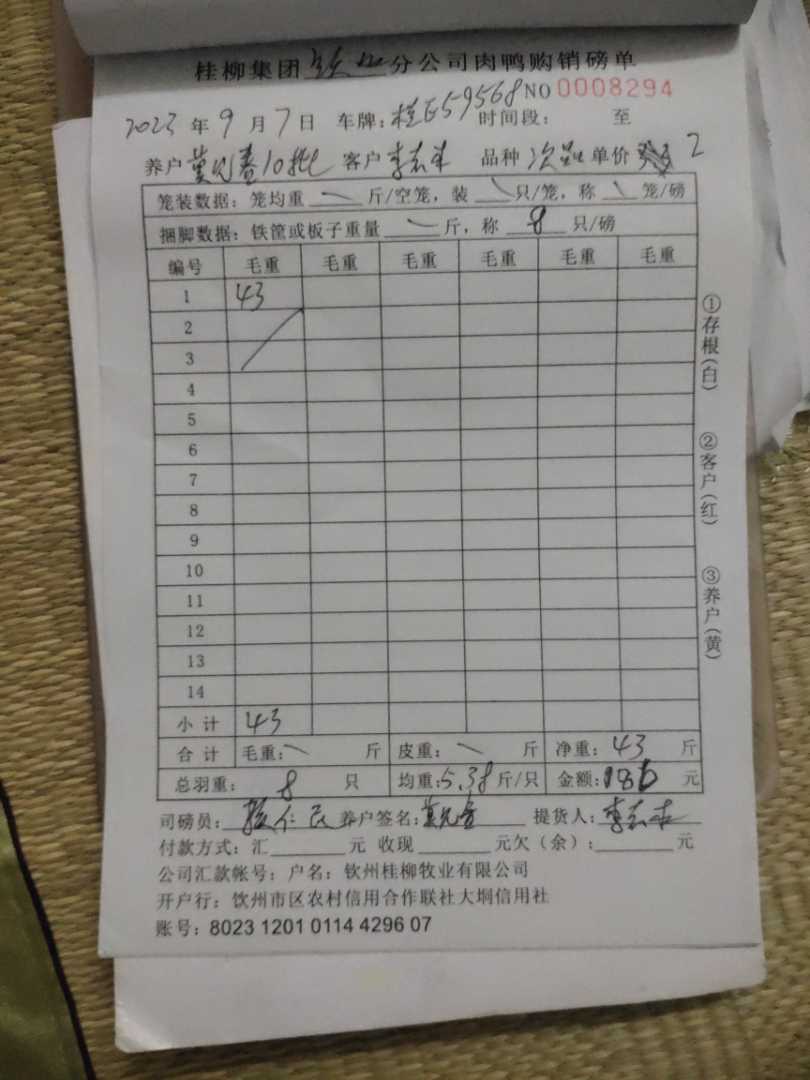 桂柳集团钦州分公司肉鸭购销磅单
2023年9月7日 车牌:桂E59568 NO 0008294
时间段: 至
养户 10批 客户 李 品种 次品 单价 2
笼装数据:笼均重 斤/空笼,装 只/笼,称 笼/磅
捆脚数据:铁筐或板子重量 斤,称 8 只/磅
编号 毛重 毛重 毛重 毛重 毛重 毛重
1 43
2
3
4
5
6
7
8
9
10
11
12
13
14
小计 43
合计 毛重: 斤 皮重: 斤 净重:43斤
总羽重: 8 只 均重:5.38斤/只 金额:186元
司磅员: 仁 养户签名: 提货人:李
付款方式:汇 元 收现 元欠(余): 元
公司汇款帐号:户名:钦州桂柳牧业有限公司
开户行:钦州市区农村信用合作联社大垌信用社
账号:8023 1201 0114 4296 07
①存根(白)
②客户(红)
③养户(黄)